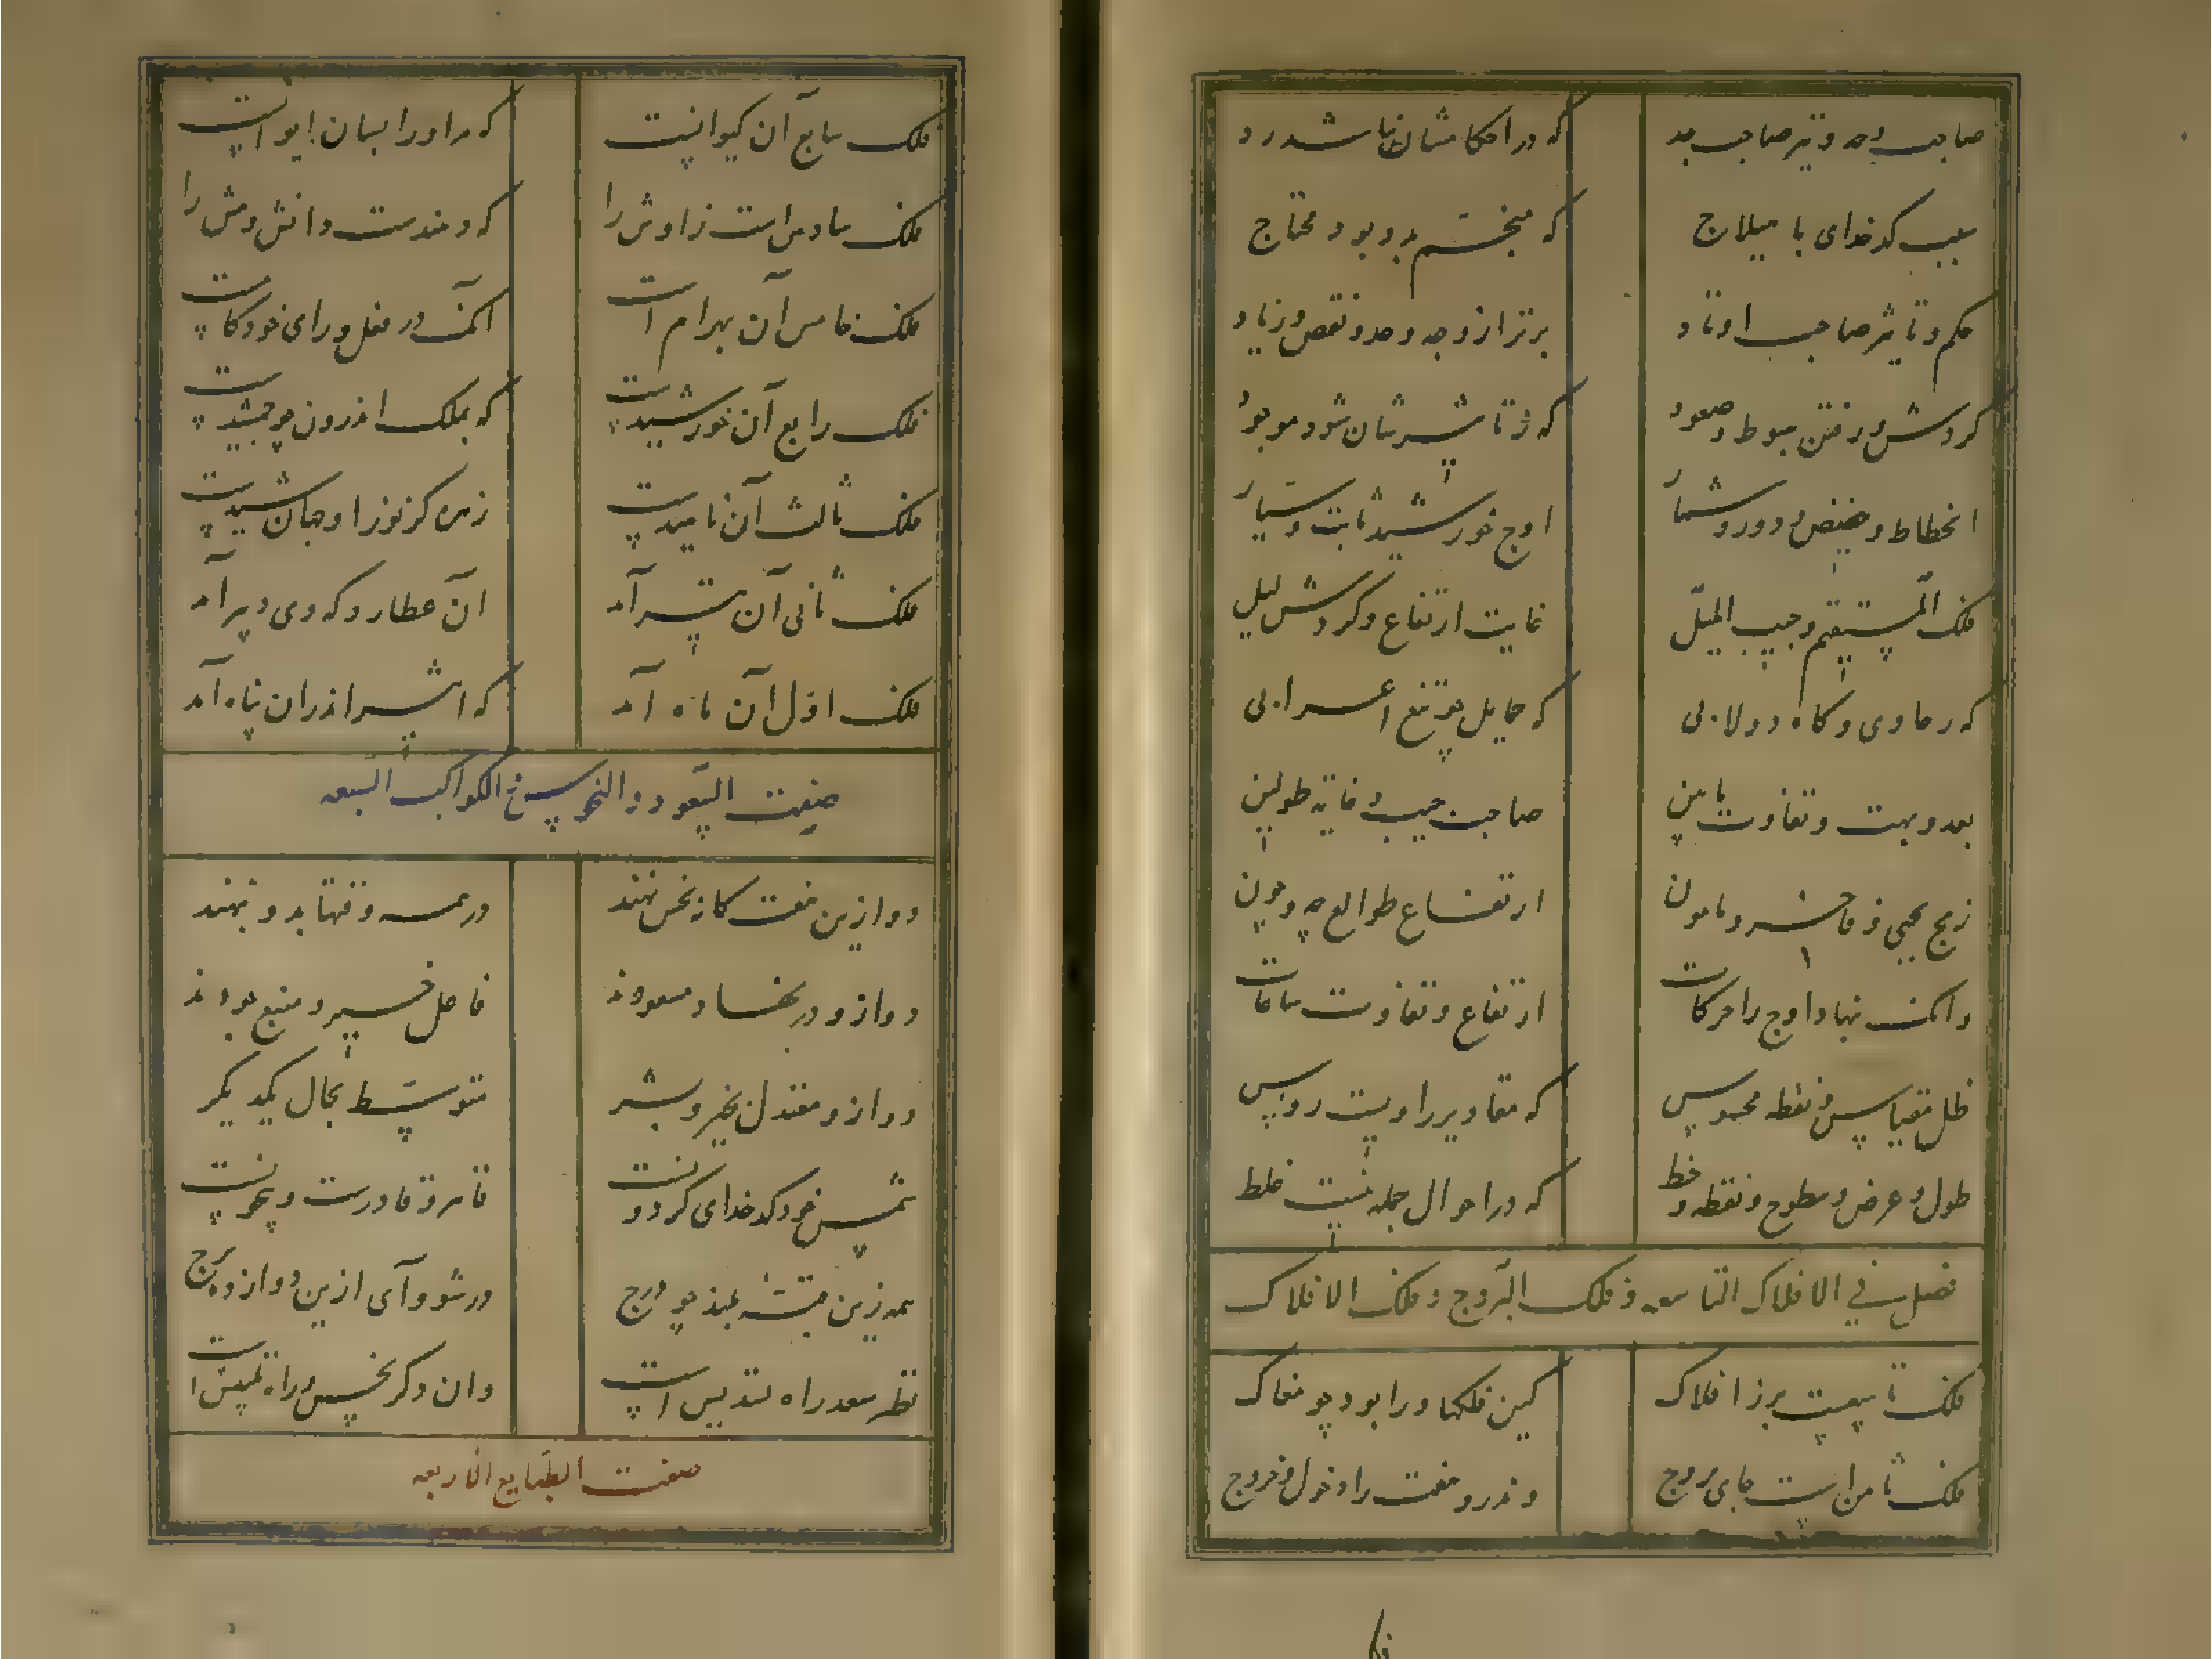 صاحب وجه و نیز صاحب حد
که در احکامشان نباشد رد
سبب کدخدای با هیلاج
که منجم بدو بود محتاج
حکم و تاثیر صاحب اوتاد
برتر از وجه و حد و نقص و زیاد
گردش و رفتن هبوط و صعود
که ز تاثیرشان شود موجود
انحطاط و حضیض و دور و شمار
اوج خورشید ثابت و سیار
فلک المستقیم و جیب المیل
غایت ارتفاع و گردش لیل
که رحاوی و گاه دولابی
که حمایل چو تیغ اعرابی
بعد و بهت و تفاوت مابین
صاحب جیب و غایة طولین
زیج یحیی و فاخر و مامون
ارتفاع طوالع چه و چون
وانک بنهاد اوج را حرکات
ارتفاع و تفاوت ساعات
ظل مقیاس و نقطه محسوس
که مقادیر راویست رؤس
طول و عرض و سطوح و نقطه و خط
که در احوال جمله نیست غلط
فصل فی الافلاک التاسعه و فلک البروج و فلک الافلاک
فلک تاسعست برز افلاک
کین فلکها ورا بود چو مغاک
فلک ثامن است جای بروج
وندرو هفت را دخول و خروج
فلک سابع آن کیوانست
که مر او را بسان ایوانست
فلک سادس است زاوش را
که دهندست دانش و هش را
فلک خامس آن بهرام است
آنک در فعل و رای خودکامست
فلک رابع آن خورشیدست
که بملک اندرون چو جمشیدست
فلک ثالث آن ناهیدست
زهره کز نور او جهان شیدست
فلک ثانی آن تیر آمد
آن عطارد که وی دبیر آمد
فلک اول آن ماه آمد
که اثیر اندران پناه آمد
صفت السعود و النحوس فی الکواکب السبعه
دو ازین هفتگانه نحس نهند
در همه وقتها بد و نبهند
دو ازو در نهاد مسعودند
فاعل خیر و منبع جودند
دو ازو معتدل بخیر و بشر
متوسط بحال یکدیگر
شمس خود کدخدای گردونست
قاهر و قادرست و بیچونست
همه زین هفت شه بلند چو درج
در شو و آی ازین دوازده برج
نظر سعد راه تسدیس است
وان دگر نحس و راه تلبیس است
صفت الطبایع الاربعه